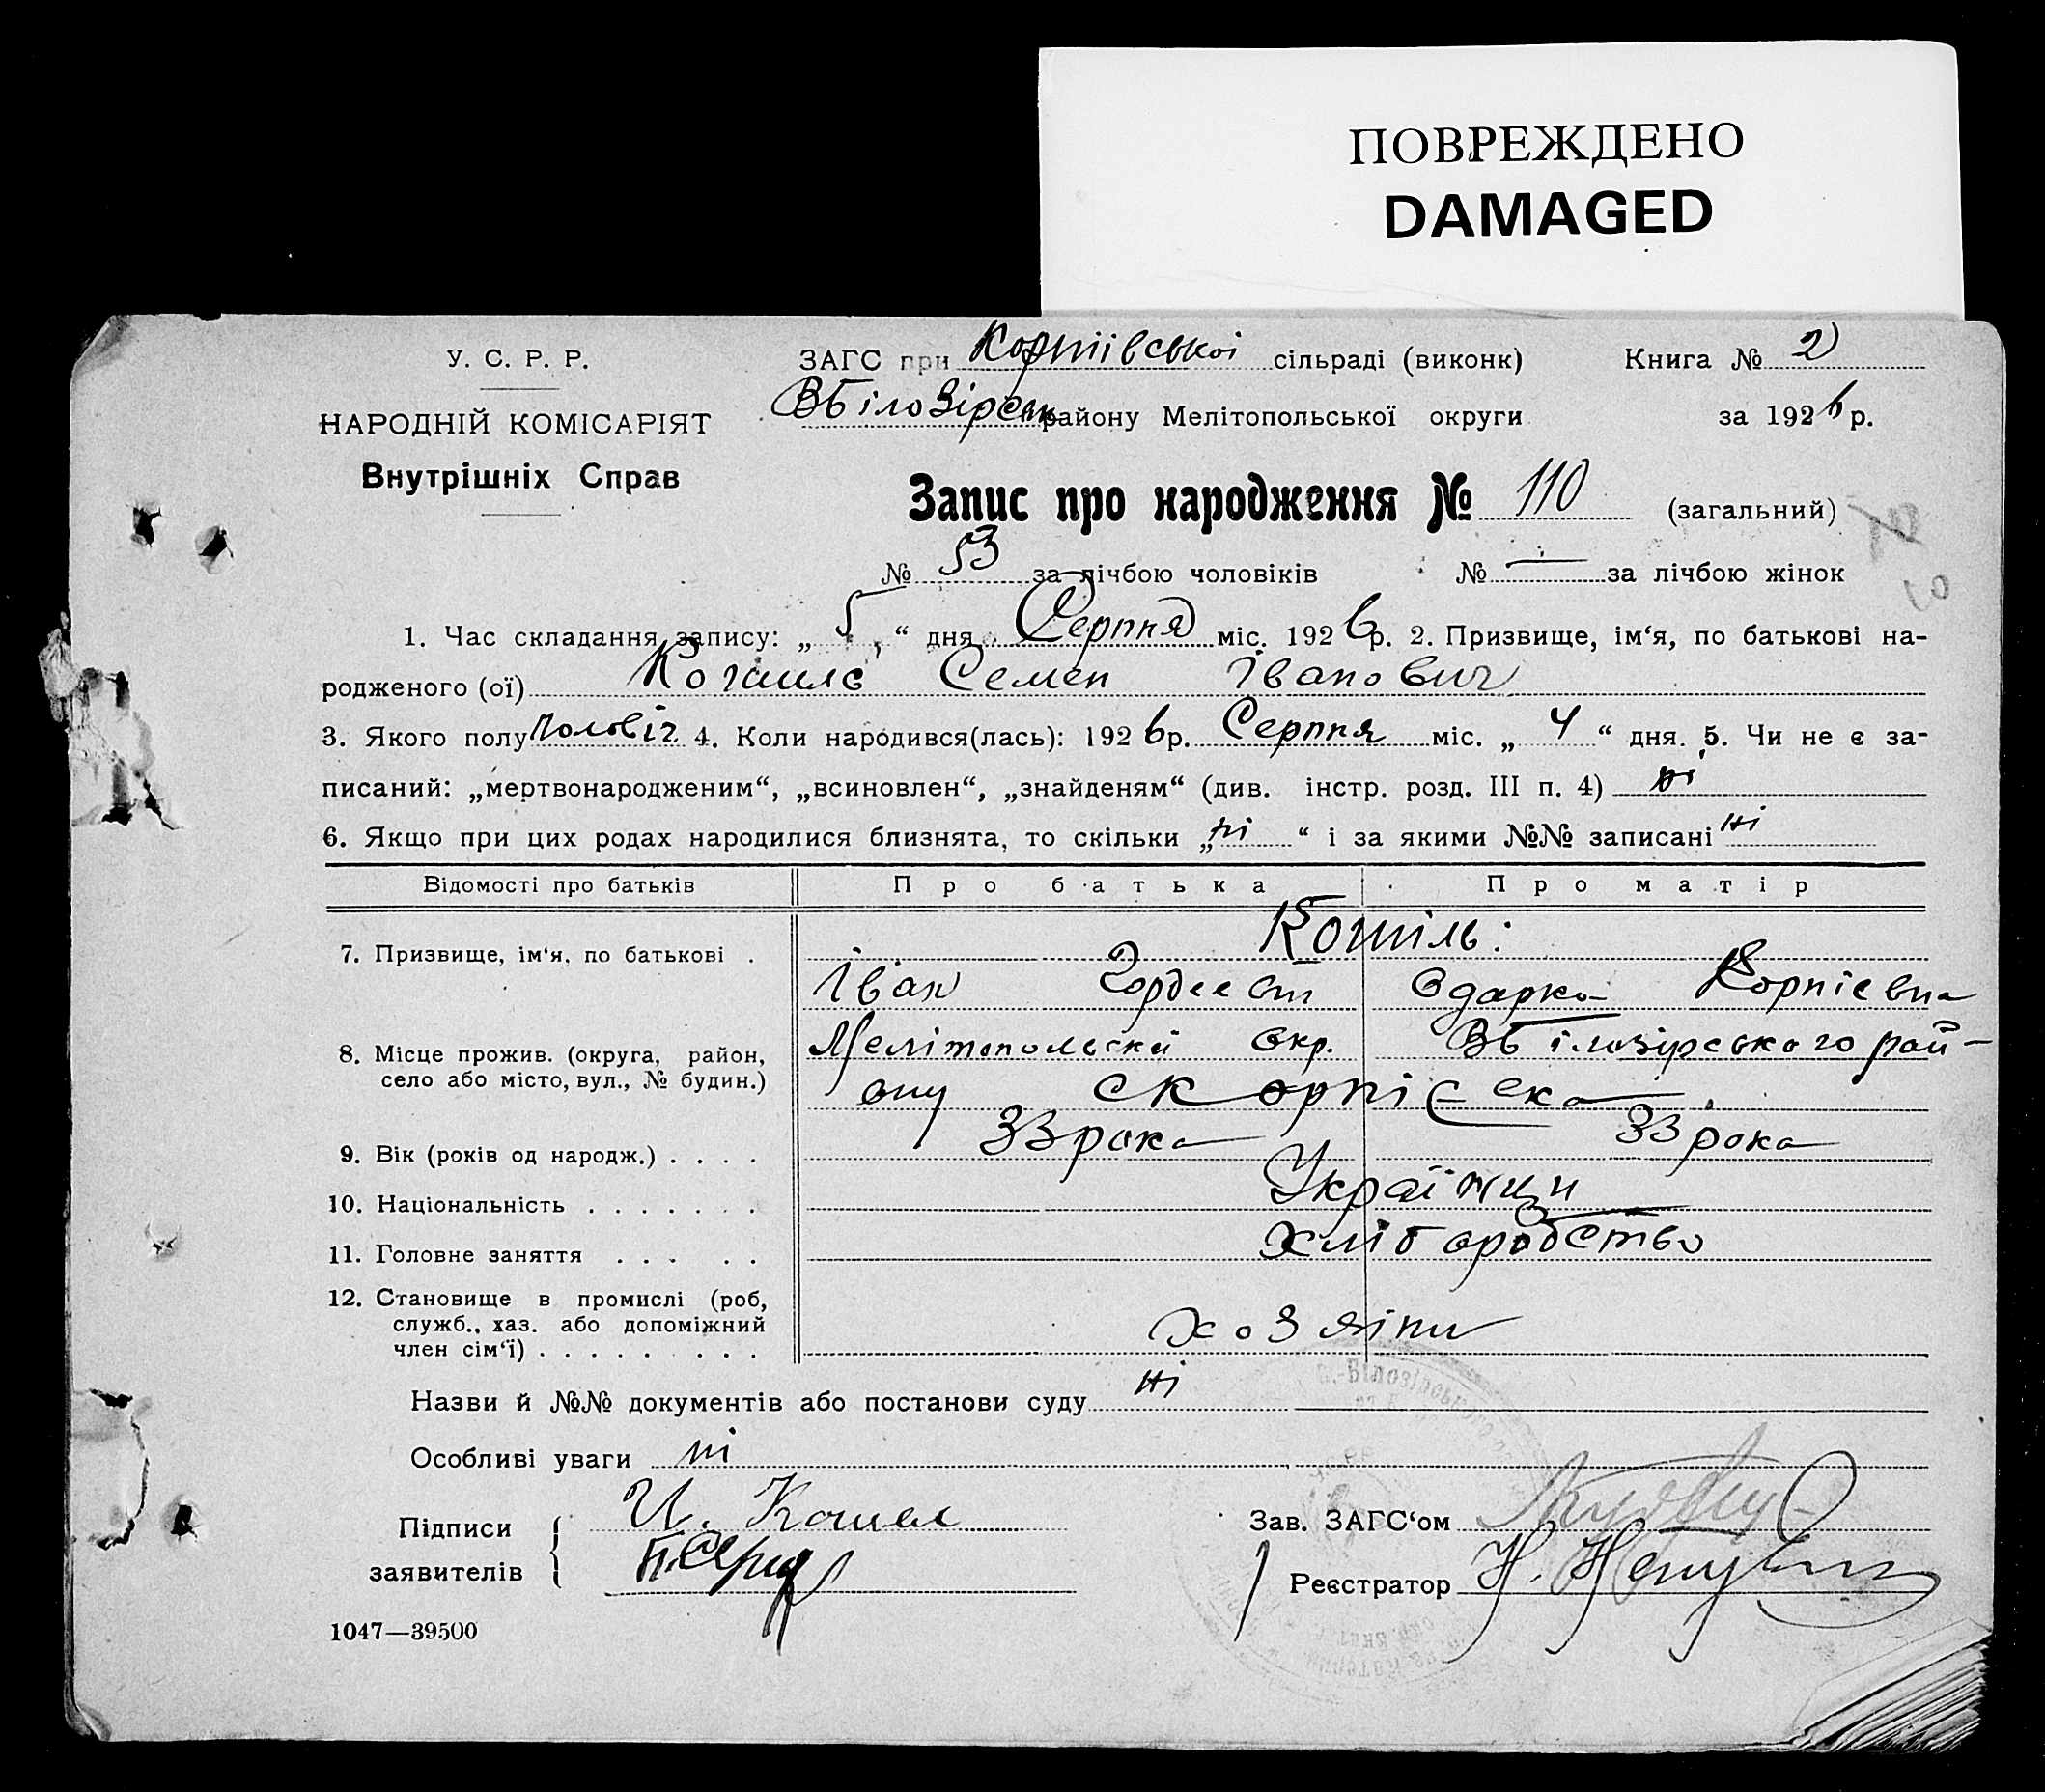 ПОВРЕЖДЕНО
DAMAGED
У. С. Р. Р.
НАРОДНІЙ КОМІСАРІЯТ
Внутрішніх Справ
ЗАГС при Корніівської сільраді (виконк) Книга № 2
ВБілозірськ району Мелітопольської округи за 1926 р.
Запис про народження № 110 (загальний)
№ 53 за лічбою чоловіків № — за лічбою жінок
1. Час складання запису: „ 5 “ дня Серпня міс. 1926 р. 2. Призвище, ім‘я, по батькові на-
родженого (ої) Семен Іванович
3. Якого полу чоловіч. 4. Коли народився(лась): 1926 р. Серпня міс. „ 4 “ дня. 5. Чи не є за-
писаний: „мертвонародженим“, „всиновлен“, „знайденям“ (див. інстр. розд. III п. 4) ні
6. Якщо при цих родах народилися близнята, то скільки „ ні “ і за якими №№ записані ні
Відомості про батьків Про батька Про матір
7. Призвище, ім‘я, по батькові . Кошіль:
Іван Гордеевич Одарка Корпіевна
8. Місце прожив. (округа, район, Мелітопольскій окр. ВБілозірського рай-
село або місто, вул., № будин.) ону с Корніевка
9. Вік (років од народж.) . . . . 33 рока 33 рока
10. Національність . . . . . . . Українци
11. Головне заняття . . . . . хліборобство
12. Становище в промислі (роб,
служб., хаз. або допоміжний хозяіни
член сім‘ї) . . . . . . . . .
Назви й №№ документів або постанови суду ні
Особливі уваги ні
Підписи И. Кошел Зав. ЗАГС‘ом
заявителів Реєстратор
1047—39500